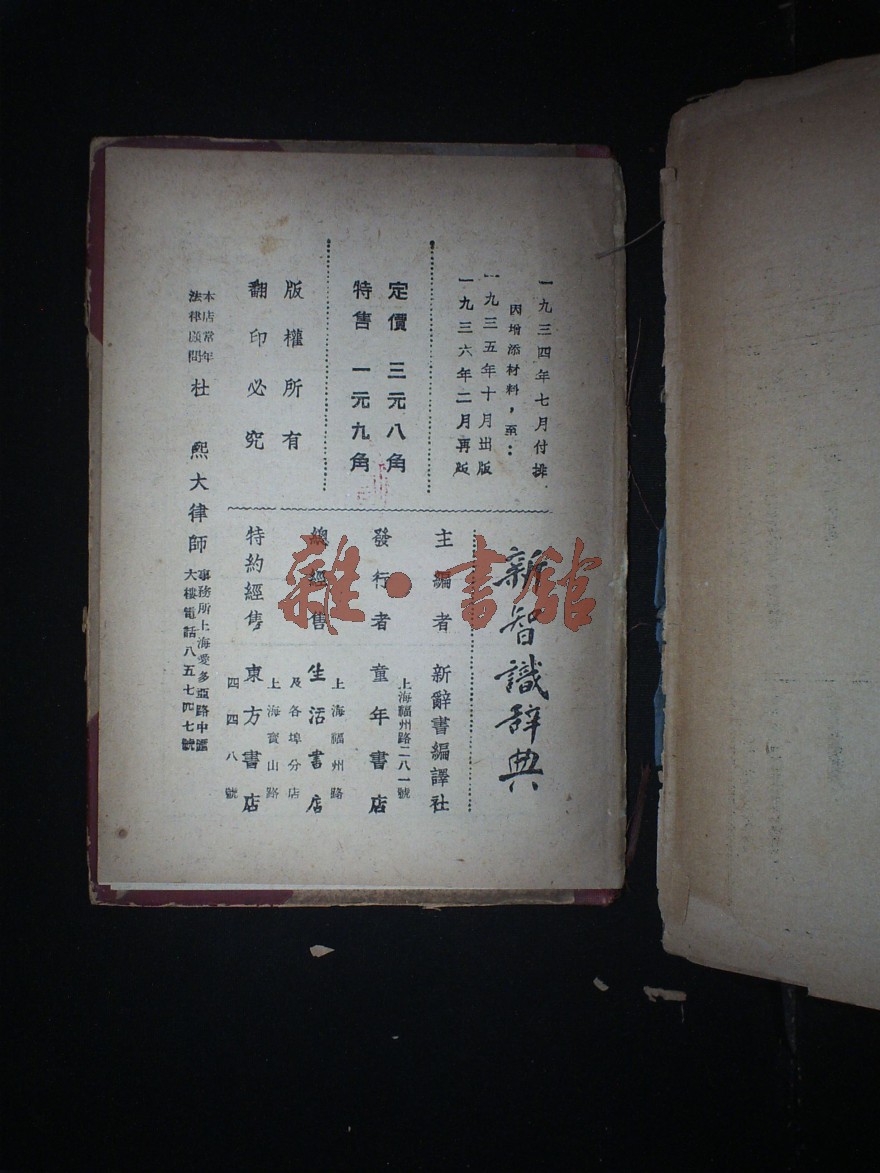 一九三四年七月付排
因增添材料，至：
一九三五年十月出版
一九三六年二月再版
定價 三元八角
特售 一元九角
版權所有
翻印必究
新智識辞典
主編者 新辭書編譯社
發行者 童年書店
上海福州路二八一號
總經售 生活書店
上海福州路
及各埠分店
特約經售 東方書店
上海寶山路
四四八號
本店常年
法律顧問
杜 熙大律師
事務所上海愛多亞路中匯
大樓電話八五七四七號
雜·書館